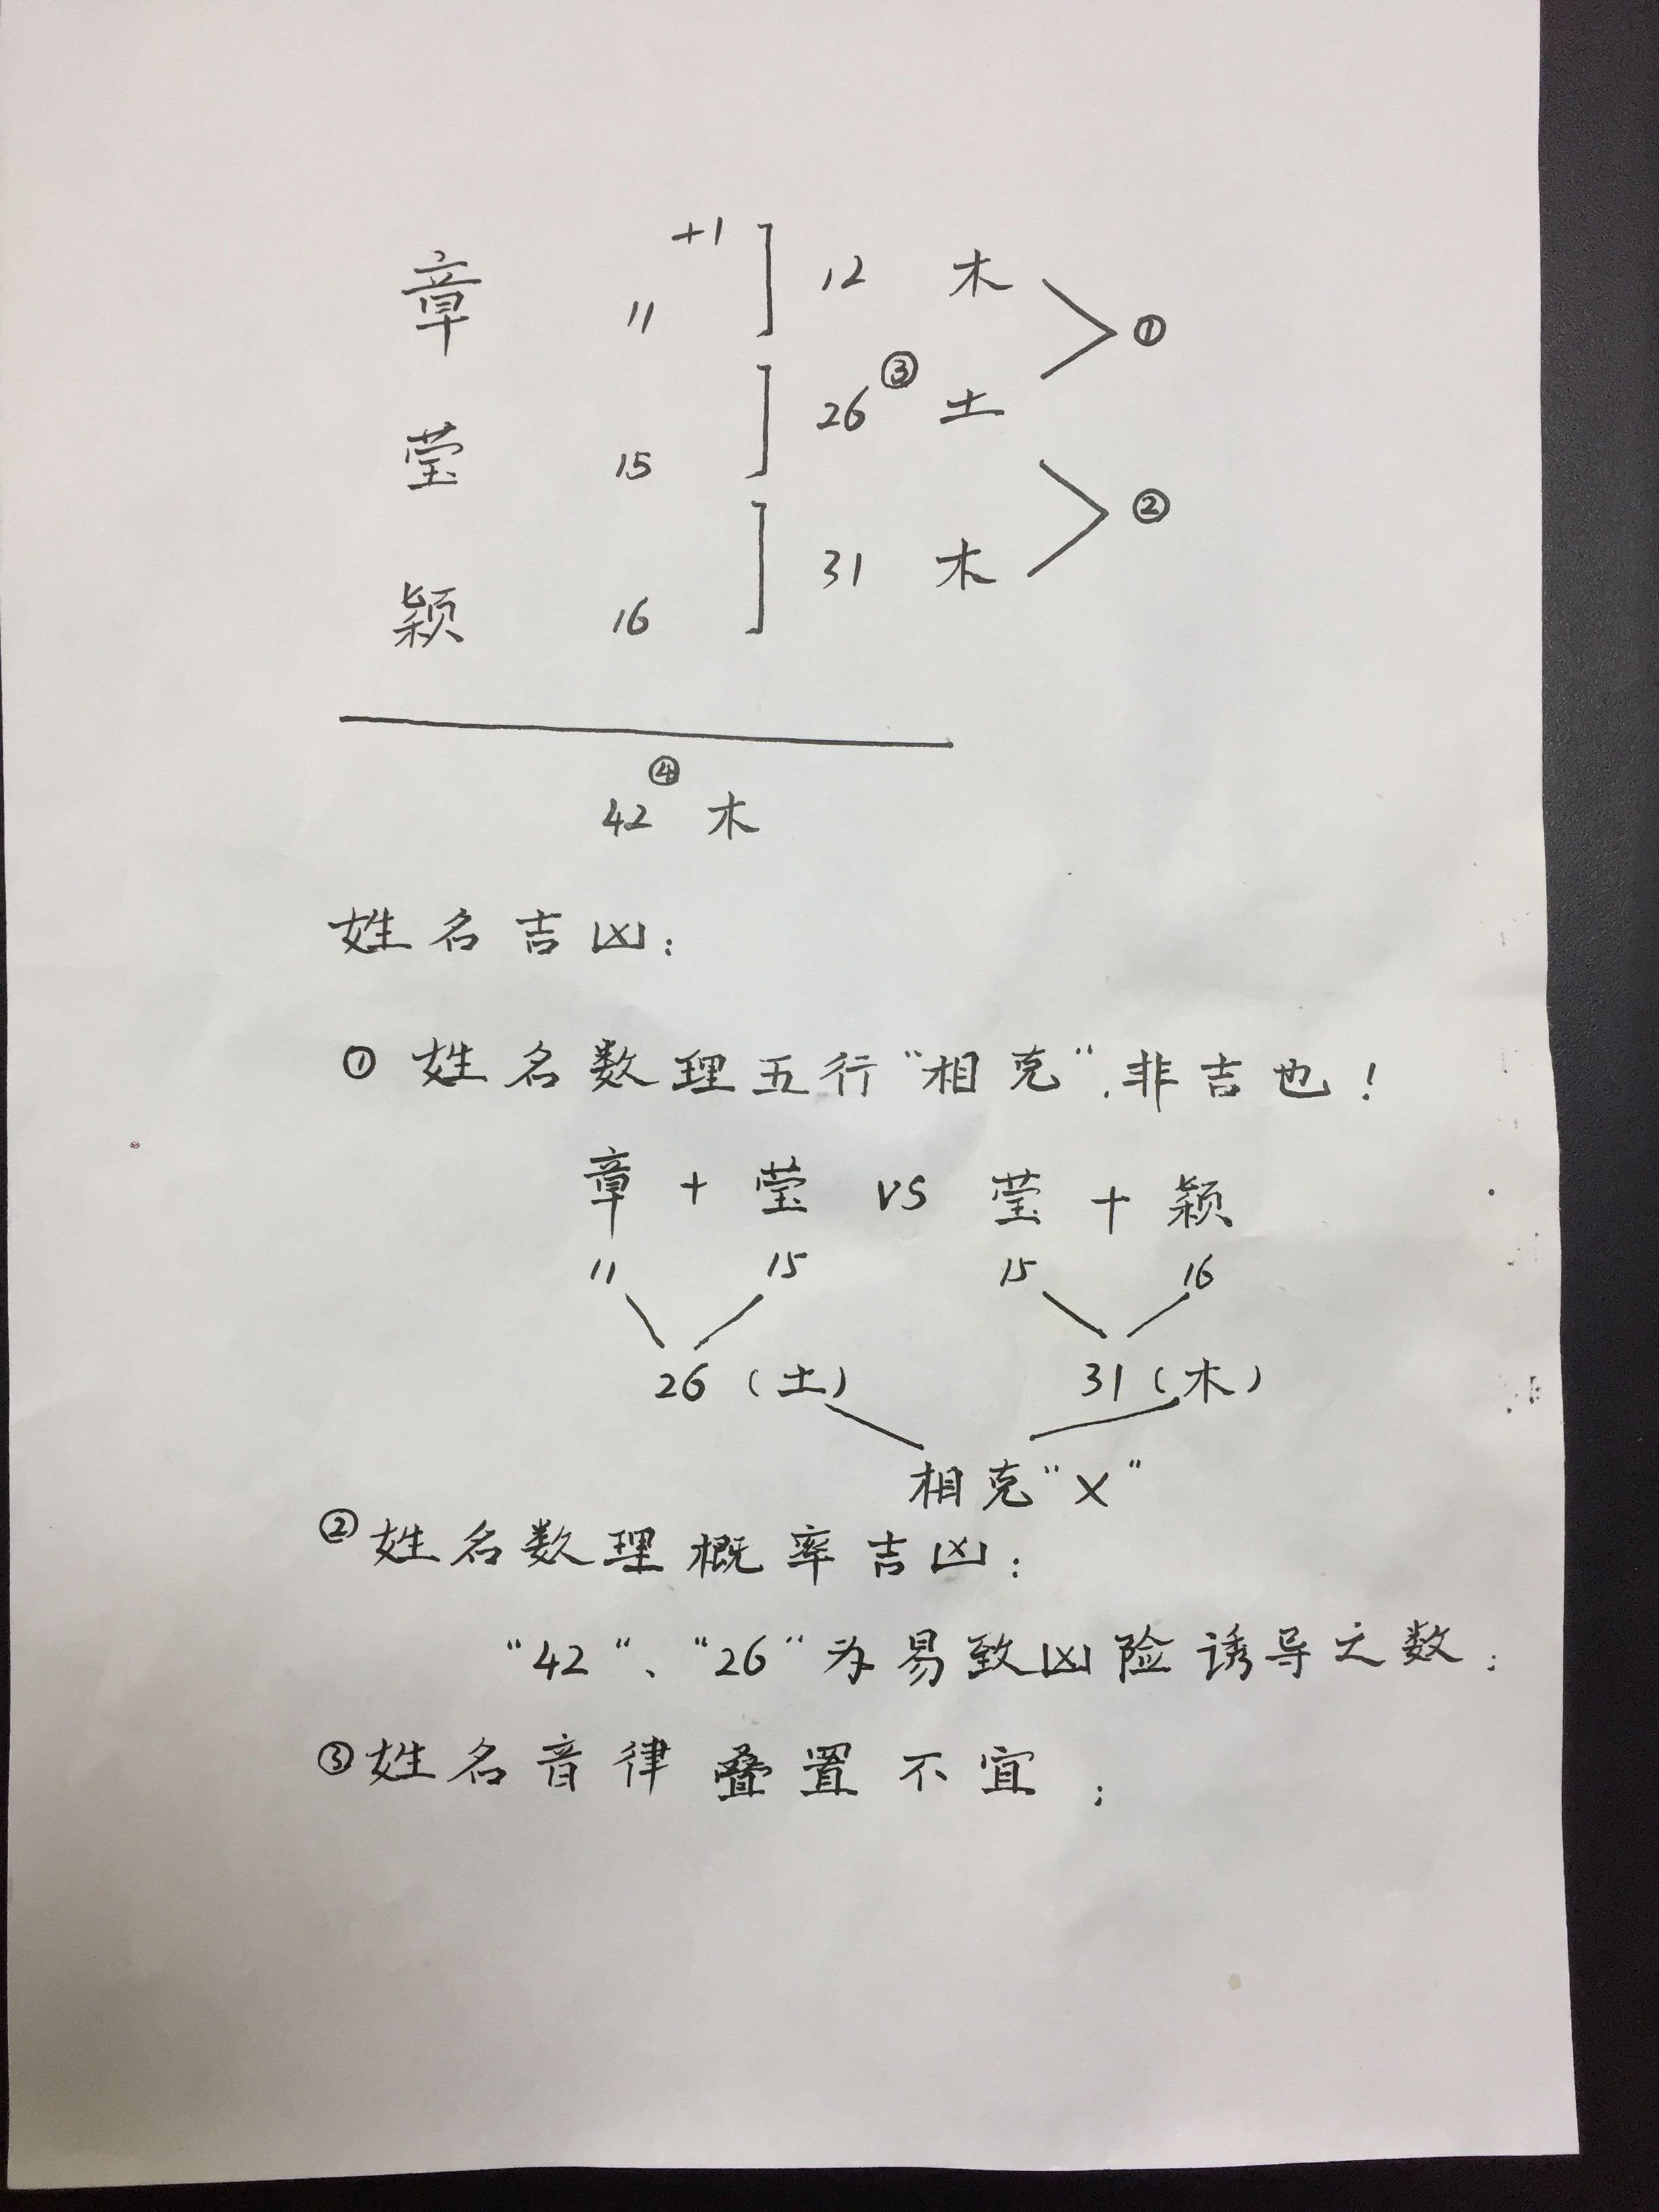 +1
章 11 12 木
①
③
莹 15 26 土
②
颖 16 31 木
④
42 木
姓名吉凶：
① 姓名数理五行“相克”，非吉也！
章 + 莹 vs 莹 + 颖
11 15 15 16
26（土） 31（木）
相克“X”
② 姓名数理概率吉凶：
“42”、“26”为易致凶险诱导之数；
③ 姓名音律叠置不宜；